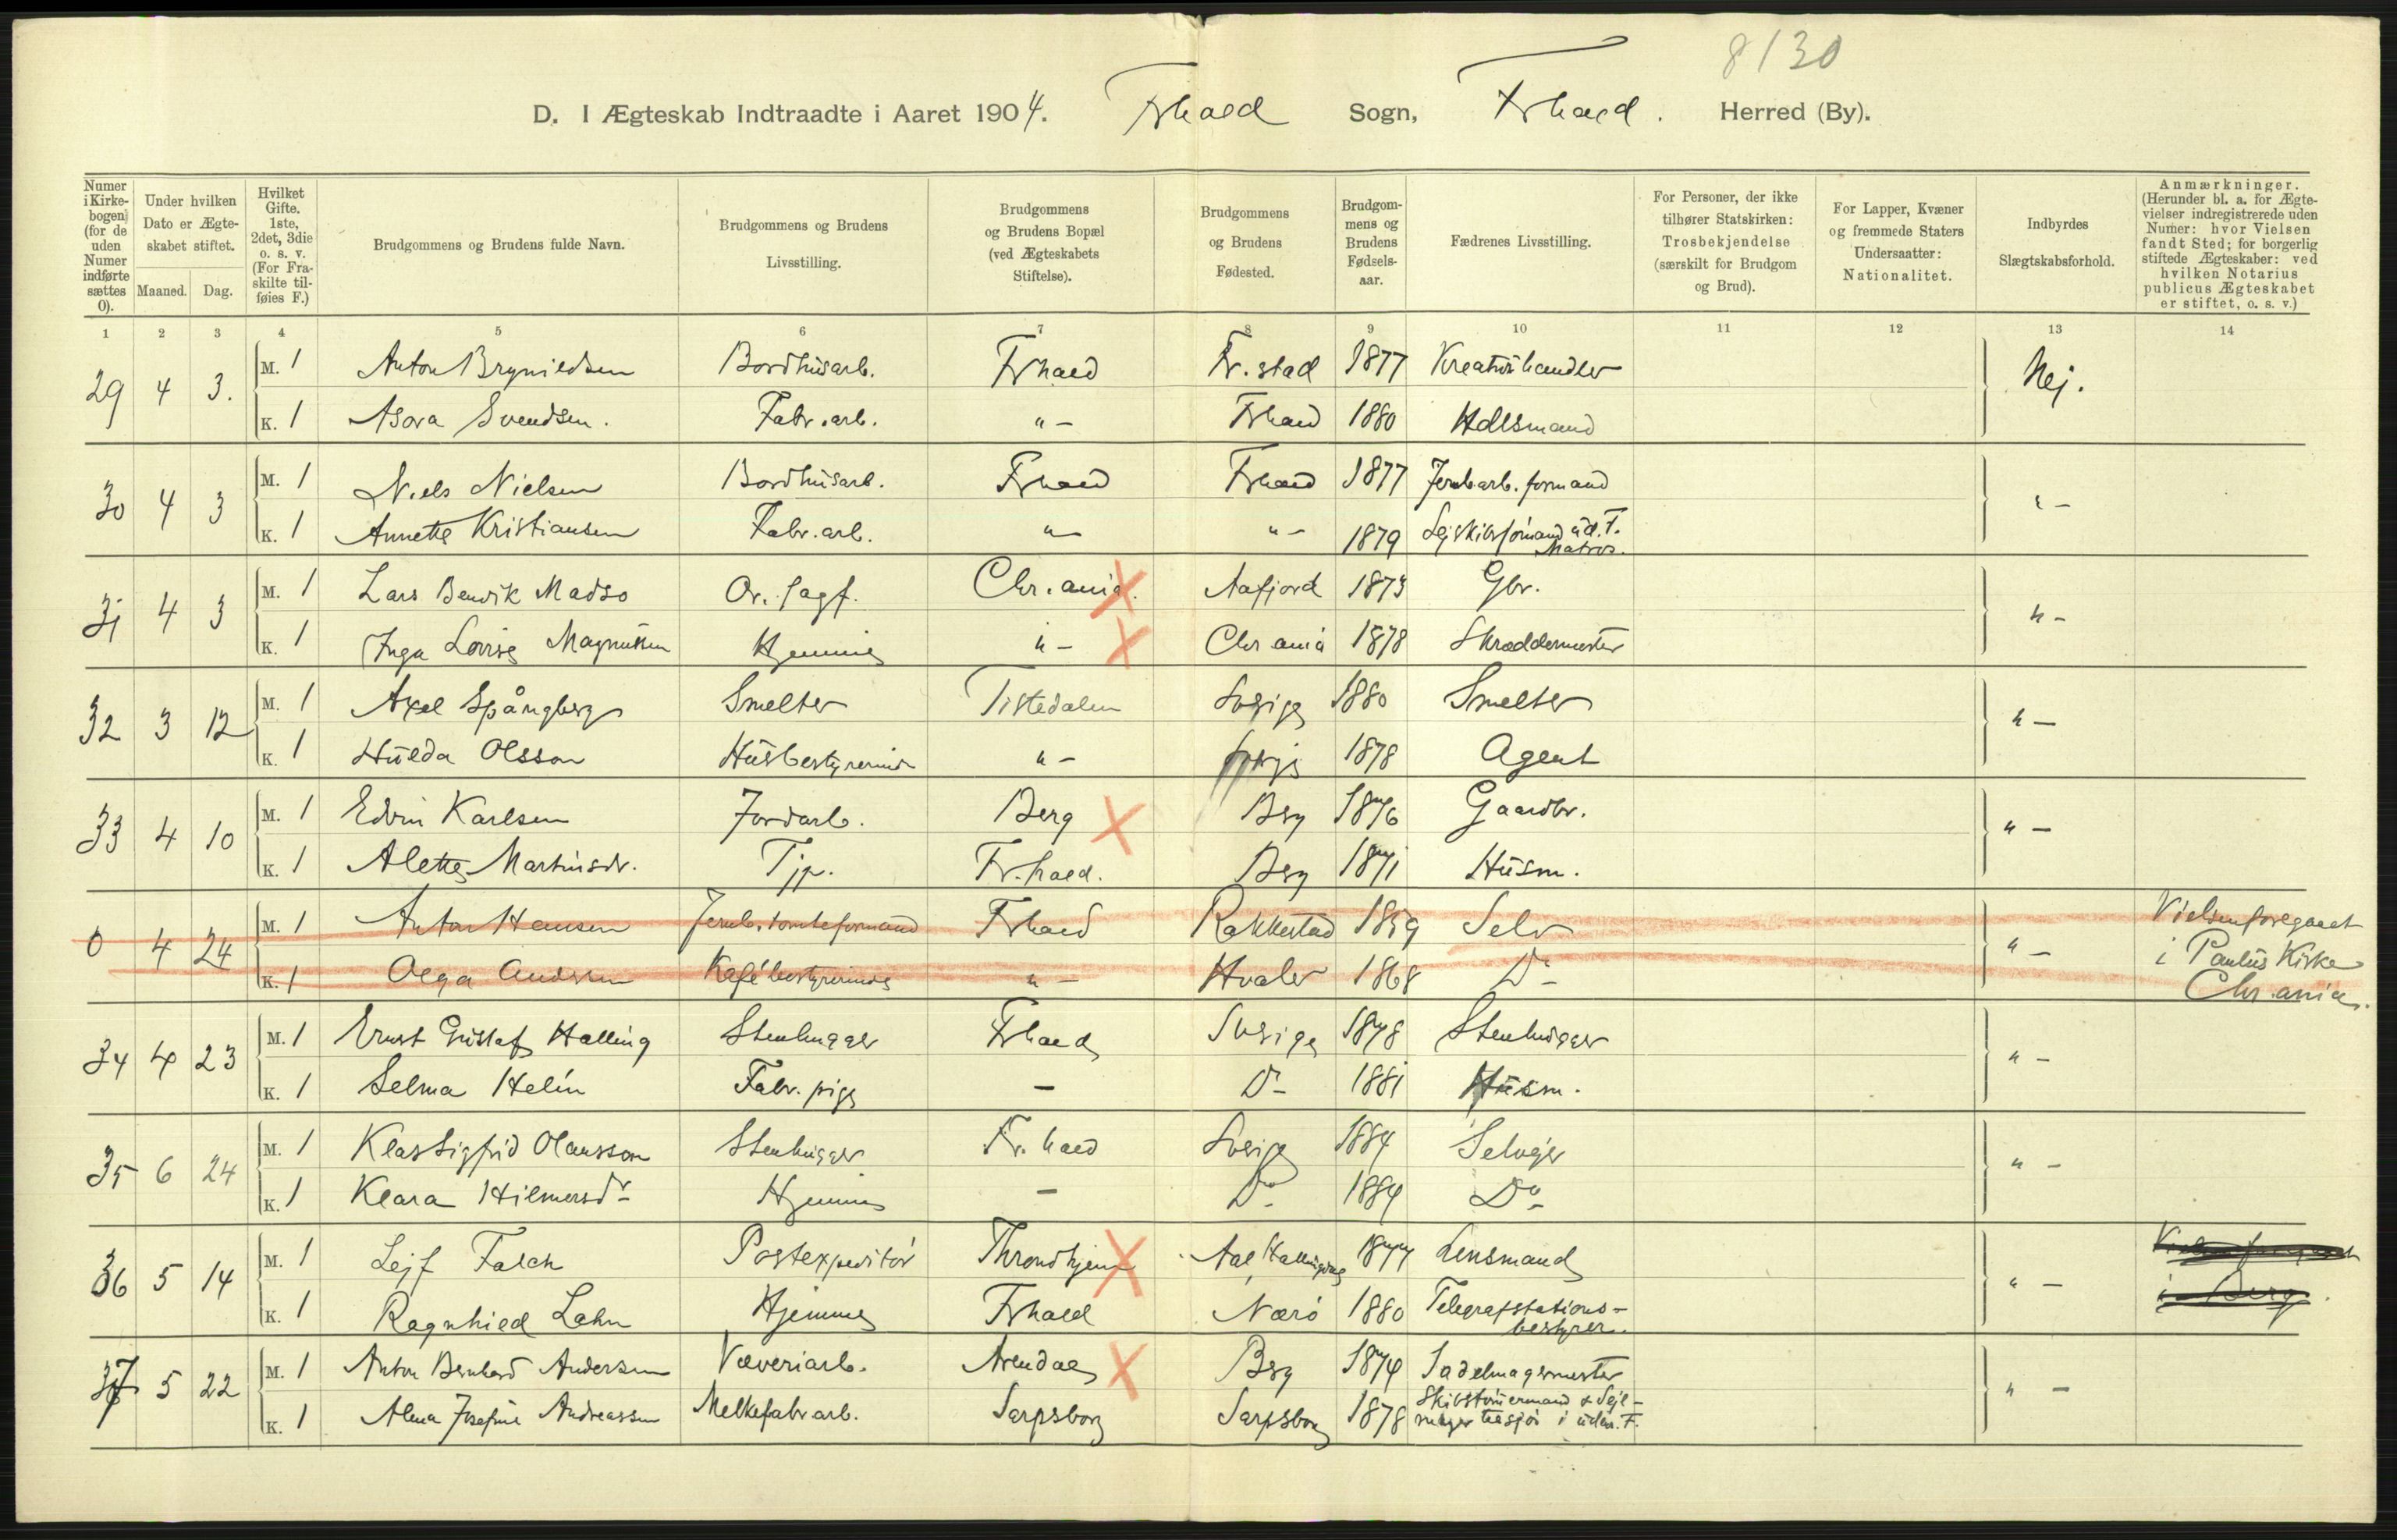 8130
D. I Ægteskab Indtraadte i Aaret 1904. Frhald Sogn, Frhald. Herred (By).
Numer i Kirkebogen (for de uden Numer indførte sættes 0).
Under hvilken Dato er Ægteskabet stiftet.
Maaned. Dag.
Hvilket Gifte. 1ste, 2det, 3die o. s. v. (For Fraskilte tilføies F.)
Brudgommens og Brudens fulde Navn.
Brudgommens og Brudens Livsstilling.
Brudgommens og Brudens Bopæl (ved Ægteskabets Stiftelse).
Brudgommens og Brudens Fødested.
Brudgommens og Brudens Fødselsaar.
Fædrenes Livsstilling.
For Personer, der ikke tilhører Statskirken: Trosbekjendelse (særskilt for Brudgom og Brud).
For Lapper, Kvæner og fremmede Staters Undersaatter: Nationalitet.
Indbyrdes Slægtskabsforhold.
Anmærkninger. (Herunder bl. a. for Ægtevielser indregistrerede uden Numer: hvor Vielsen fandt Sted; for borgerlig stiftede Ægteskaber: ved hvilken Notarius publicus Ægteskabet er stiftet, o. s. v.)
1 2 3 4 5 6 7 8 9 10 11 12 13 14
29 4 3. M. 1 Anton Brynildsen Bordhusarb. Frhald Fr. stad 1877 Kreaturhandler Nej.
K. 1 Asora Svendsen. Fabr. arb. " - Frhald 1880 Holsmand
30 4 3 M. 1 Niels Nielsen Bordhusarb. Frhald Frhald 1877 Jernb. arb. formand " -
K. 1 Annette Kristiansen Fabr. arb. " " - 1879 ud. F. Matros.
31 4 3 M. 1 Lars Benvik Madso Or. sagf. Chr. ania. Aafjord 1873 Gbr. " -
K. 1 Inga Lovise Magnussen Hjemme " - Chr ania 1878 Skræddermester
32 3 12 M. 1 Axel Spångberg Smelter Tistedalen Sverige 1880 Smelter " -
K. 1 Hulda Olsson Husbestyrerinde " - Sverige 1878 Agent
33 4 10 M. 1 Edvin Karlsen Jordarb. Berg Berg 1876 Gaardbr. " -
K. 1 Alette Martinsdr. Tjp. Fr. hald. Berg 1871 Husm.
0 4 24 M. 1 Anton Hansen Jernb. tomteformand Frhald Rakkestad 1859 Selv " - Vielsen foregaaet
K. 1 Olga Andersen Kafébestyrerinde " - Hvaler 1868 Do - i Paulus Kirke
Chr. ania.
34 4 23 M. 1 Ernst Gustaf Halling Stenhugger Frhald Sverige 1878 Stenhugger " -
K. 1 Selma Helin Fabr. pige - Do - 1881 Husm.
35 6 24 M. 1 Klas Sigfrid Olausson Stenhugger Fr. hald Sverige 1884 Selvejer " -
K. 1 Klara Hilmersdr - Hjemme - Do - 1884 Do -
36 5 14 M. 1 Lejf Falch Postexpeditør Throndhjem Aal Hallingdal 1877 Lensmand " -
K. 1 Ragnhild Lahn Hjemme Frhald Nærø 1880 Telegrafstations- i Berg.
bestyrer.
37 5 22 M. 1 Anton Bernhard Andersen Væveriarb. Arendal Berg 1874 Sadelmagermester " -
K. 1 Alma Josefine Andreassen Melkefabr arb. Sarpsborg Sarpsborg 1878 Skibstømermand & Sejl-
mager i udn. F.